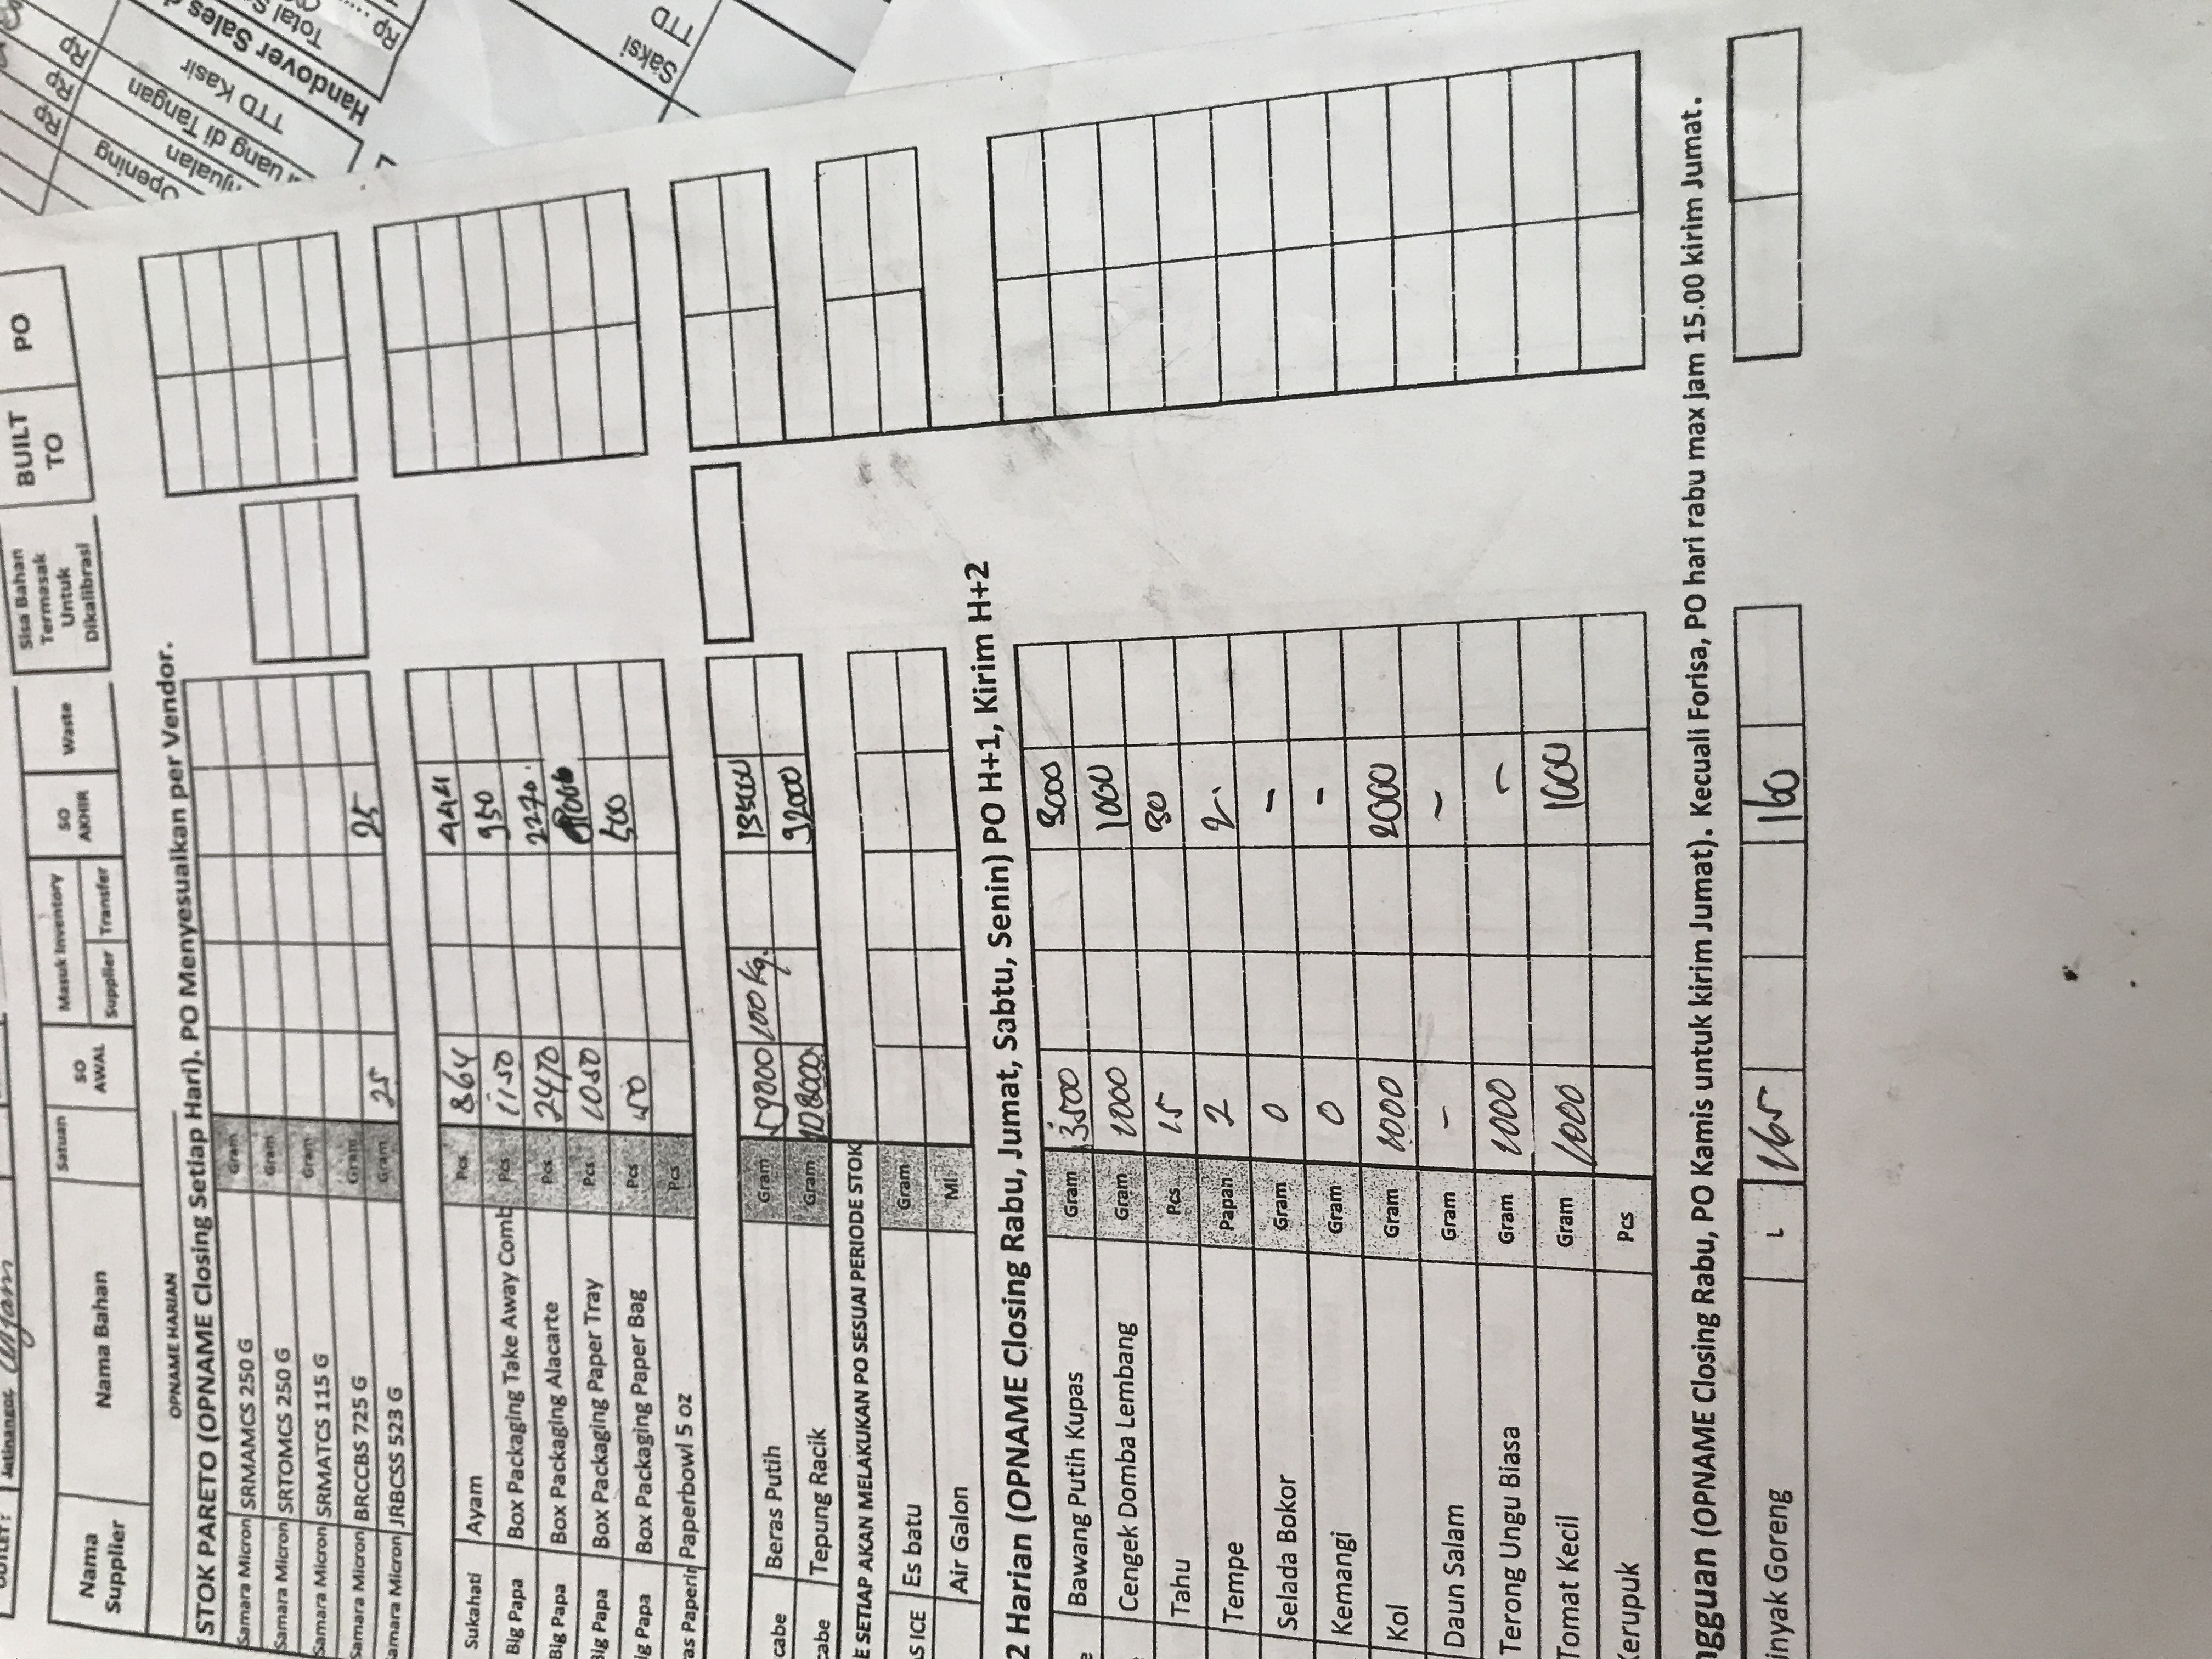 OUTLET : Jatinangor
Nama Supplier Nama Bahan Satuan SO AWAL Masuk Inventory Supplier Transfer SO AKHIR Waste Sisa Bahan Termasak Untuk Dikalibrasi BUILT TO PO
OPNAME HARIAN
STOK PARETO (OPNAME Closing Setiap Hari). PO Menyesuaikan per Vendor.
Samara Micron SRMAMCS 250 G Gram
Samara Micron SRTOMCS 250 G Gram
Samara Micron SRMATCS 115 G Gram
Samara Micron BRCCBS 725 G Gram
amara Micron JRBCSS 523 G Gram 25 25
Sukahati Ayam Pcs 864 444
Big Papa Box Packaging Take Away Comb Pcs 1150 950
Big Papa Box Packaging Alacarte Pcs 2470 2270
Big Papa Box Packaging Paper Tray Pcs 1050
ig Papa Box Packaging Paper Bag Pcs 500
as Paperin Paperbowl 5 oz Pcs
cabe Beras Putih Gram 59000 100 Kg. 135000
cabe Tepung Racik Gram 108000 92000
E SETIAP AKAN MELAKUKAN PO SESUAI PERIODE STOK
S ICE Es batu Gram
Air Galon Ml
2 Harian (OPNAME Closing Rabu, Jumat, Sabtu, Senin) PO H+1, Kirim H+2
e Bawang Putih Kupas Gram 3500 3000
Cengek Domba Lembang Gram 1000 1000
Tahu Pcs 15 30
Tempe Papan 2 2.
Selada Bokor Gram 0 -
Kemangi Gram 0 -
Kol Gram 1000 2000
Daun Salam Gram - -
Terong Ungu Biasa Gram 1000 -
Tomat Kecil Gram 1000 1000
Kerupuk Pcs
ngguan (OPNAME Closing Rabu, PO Kamis untuk kirim Jumat). Kecuali Forisa, PO hari rabu max jam 15.00 kirim Jumat.
inyak Goreng L 165 160
Rp
Rp
Rp
Opening
njualan
uang di Tangan
TTD Kasir
Handover Sales
Total
Rp ....
Saksi
TTD